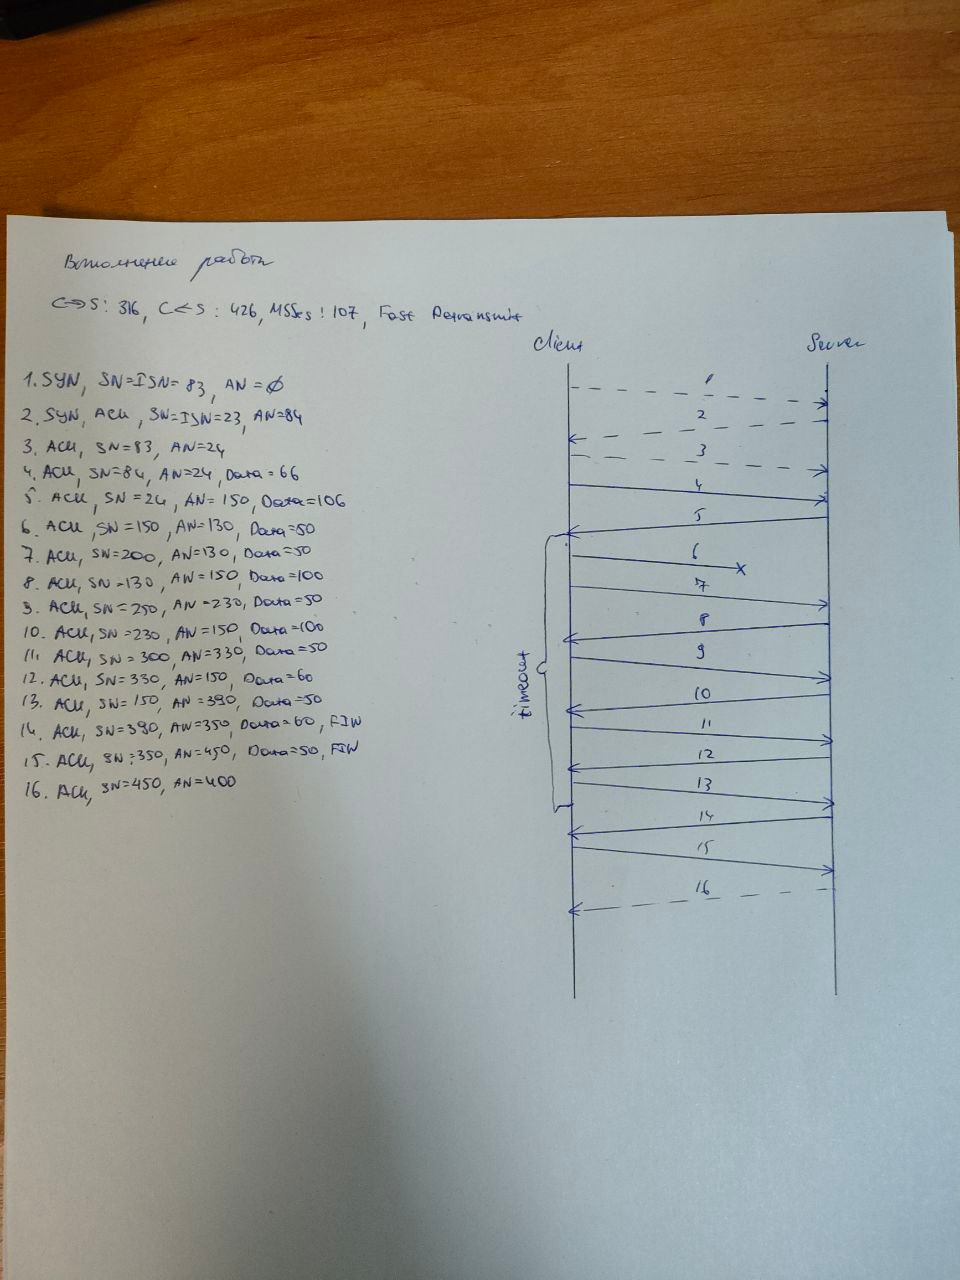 Выполнение работы
C=>S: 316, C<=S: 426, MSScs: 107, Fast Retransmit
Client Server
1. SYN, SN=ISN=83, AN=∅
2. SYN, ACK, SN=ISN=23, AN=84
3. ACK, SN=83, AN=24
4. ACK, SN=84, AN=24, Data=66
5. ACK, SN=24, AN=150, Data=106
6. ACK, SN=150, AN=130, Data=50
7. ACK, SN=200, AN=130, Data=50
8. ACK, SN=130, AN=150, Data=100
9. ACK, SN=250, AN=230, Data=50
10. ACK, SN=230, AN=150, Data=100
11. ACK, SN=300, AN=330, Data=50
12. ACK, SN=330, AN=150, Data=60
13. ACK, SN=150, AN=390, Data=50
14. ACK, SN=390, AN=350, Data=60, FIN
15. ACK, SN=350, AN=450, Data=50, FIN
16. ACK, SN=450, AN=400
1
2
3
4
5
6
7
8
9
10
11
12
13
14
15
16
timeout